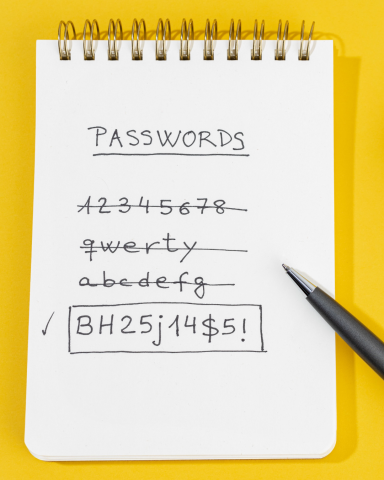 PASSWORDS
12345678
qwerty
abcdefg
BH25j14$5!